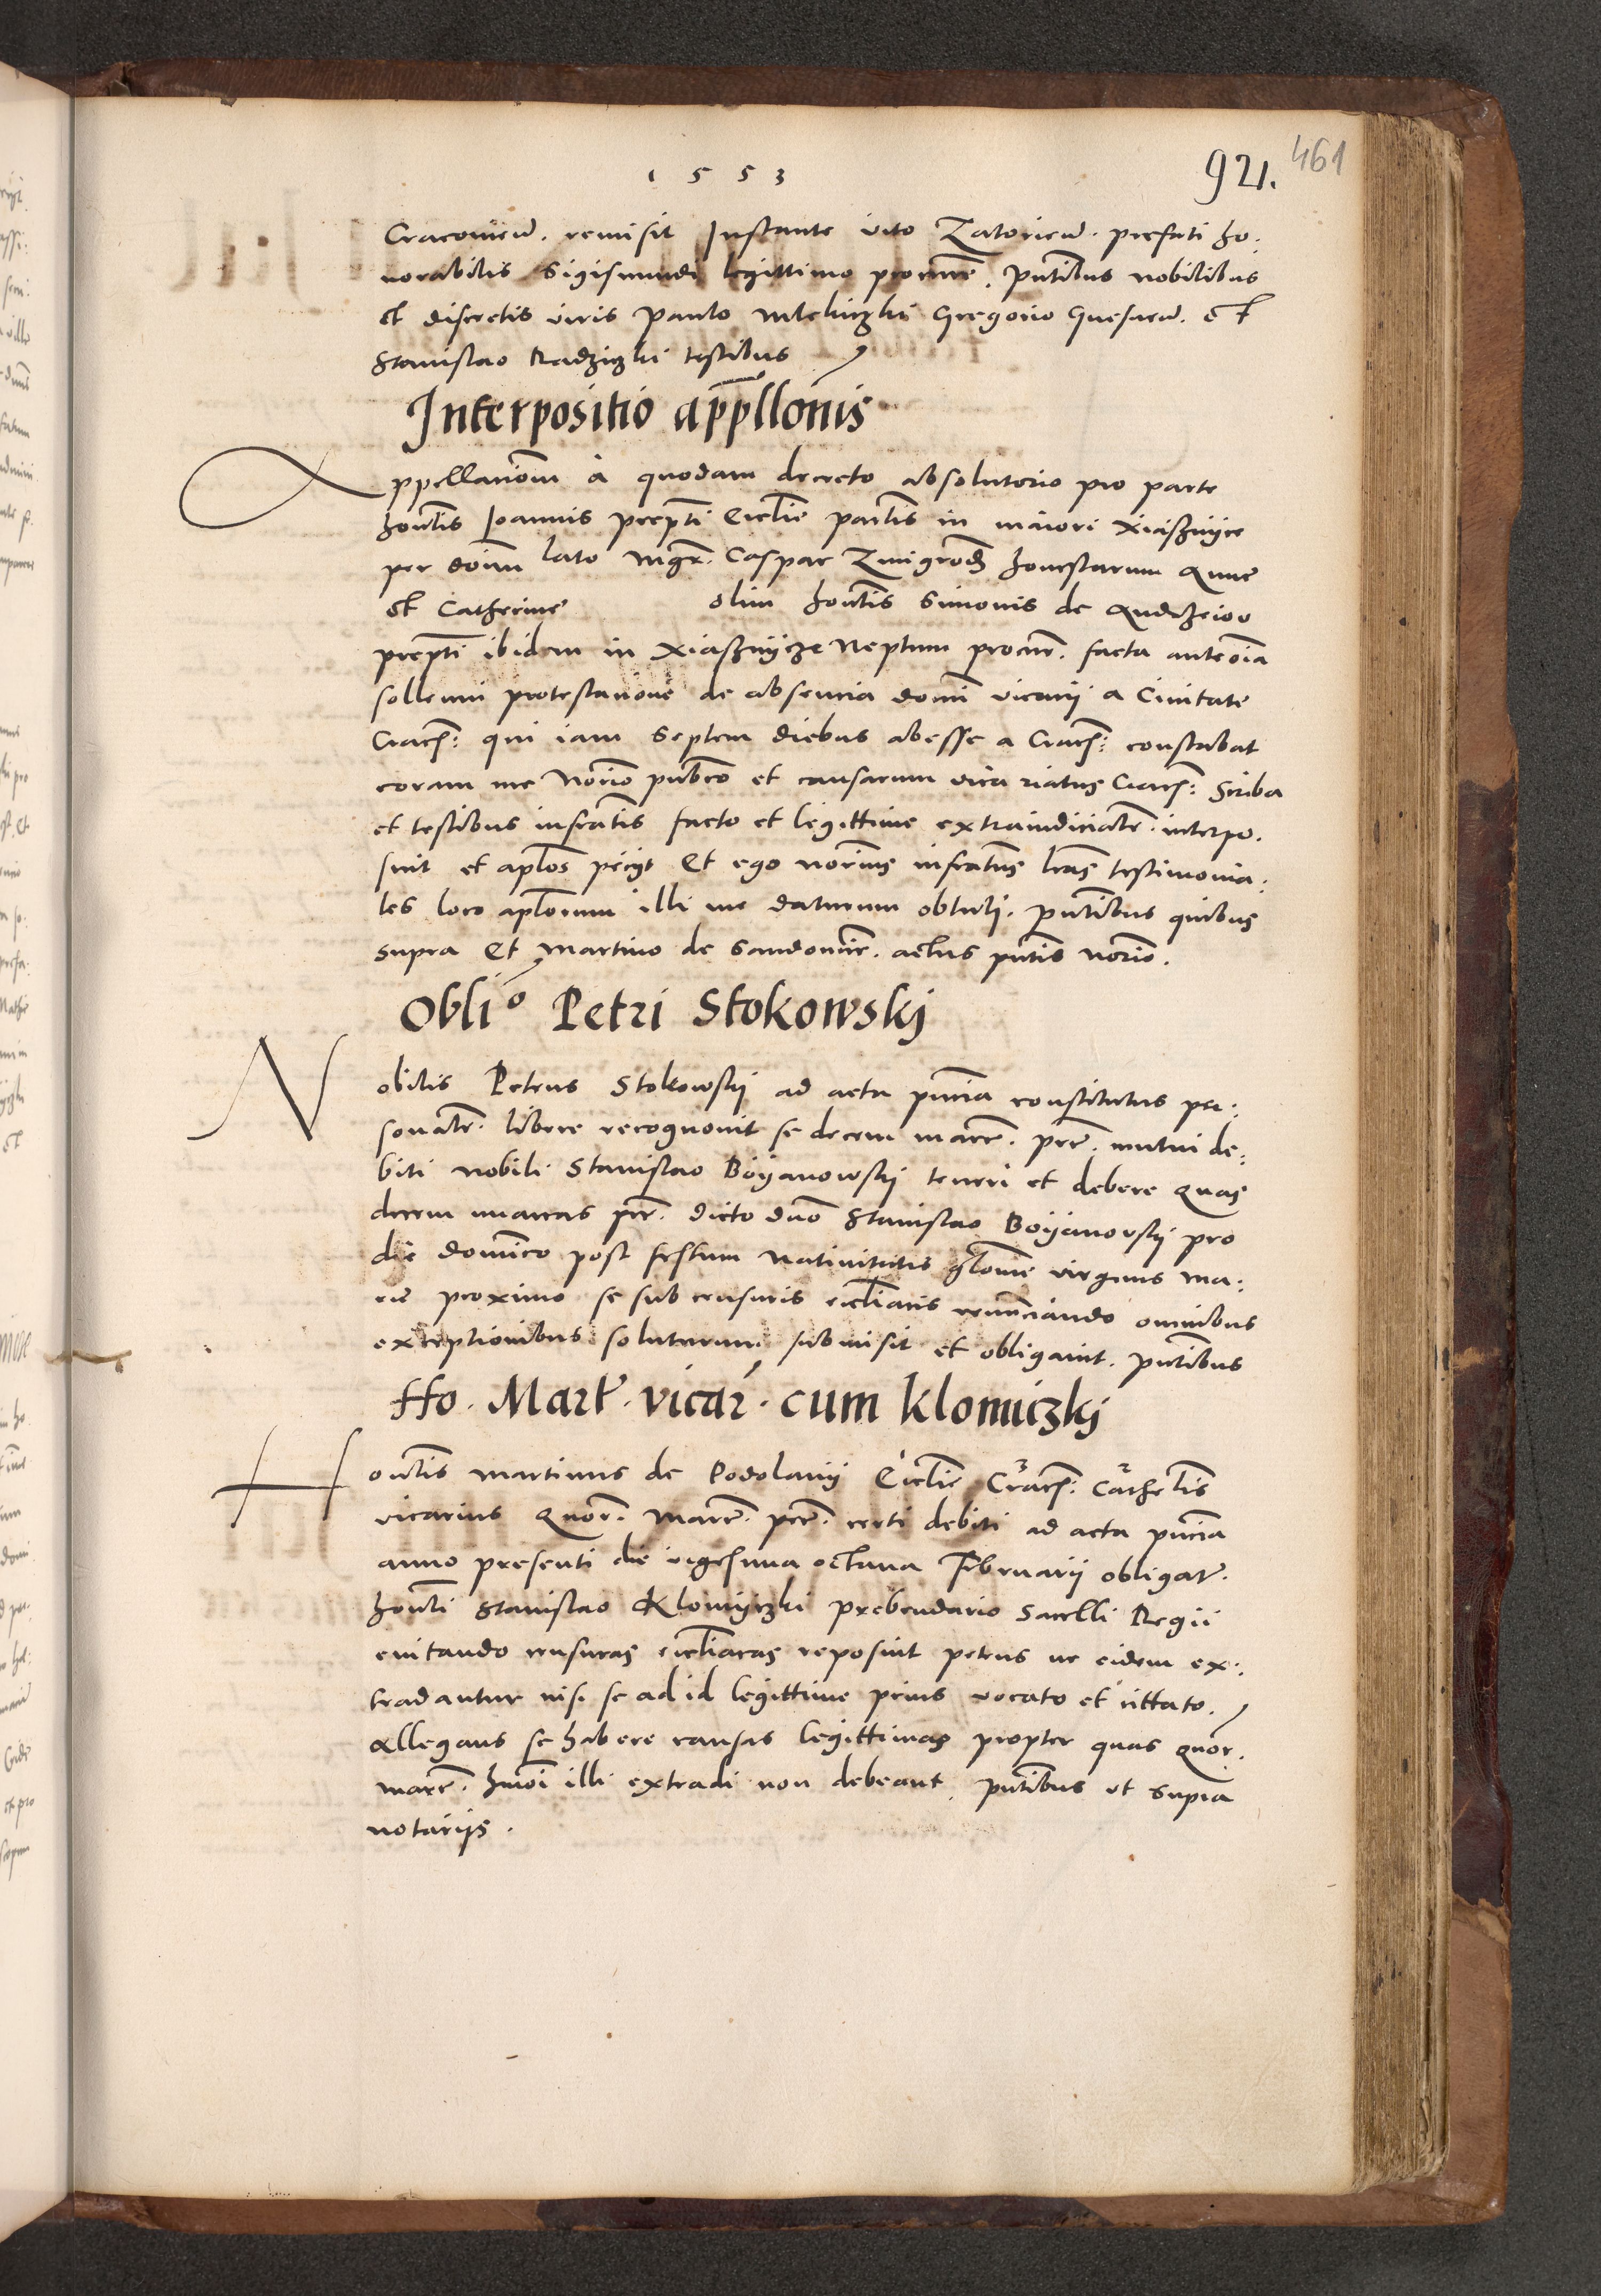 1553
921.
461
Cracovien. remisit Instante vito Zatorien. prefati ho.
norabilis Sigismundi legittimo procure. pntibus nobilibus
et discretis viris Paulo Gregorio et
Stanislao Radziczki testibus
Interpositio appllonis
Appellationem a quodam decreto absolutorio pro parte
hontis Joannis prepti Ecclie parlis in maiori Xiasznycze
per dnum lato Mgr. Caspar Zmigrodz honestarum Anne
et Catherine olim hontis Simonis de Andrzeiow
prepti ibidem in Xiasznycze Neptum procur. facta ante oia
sollenni protestatione de absencia domi vicarii a Civitate
Cracs: qui iam septem diebus abesse a Cracs: constabat
coram me Norio publico et causarum vicariatus Cracs: Scriba
et testibus infratis facto et legittime extraiudicialr. interpo.
suit et aplos pecijt Et ego norius infratus lras testimonia:
les loco aplorum illi me daturum obtuli. pntibus quibus
supra Et Martino de Sandomir. actus pntis norio.
Oblio Petri Stokowskij
Nobilis Petrus Stokowskij ad acta pncia constitutus per:
sonalr. libere recognovit se decem marc. pec. mutui de:
biti nobili Stanislao Boyanowskij teneri et debere Quas
decem marcas pec. dicto dno Stanislao Boyanowskij pro
die dominico post festum nativitatis gloriose virginis Ma:
rie proximo se sub censuris ecclicis renunciando omnibus
exceptionibus soluturum submisit et obligavit. pntibus
Ho. Mart. vicar. cum Klomiczkj
Hontis Martinus de Podolanij Ecclie Cracs: Cathelis
vicarius Quor. Marc. pec. certi debiti ad acta pncia
anno presenti die vigesima octava Februarij obligat.
honli Stanislao Klomyczki prebendario Sacelli Regii
evitando censuras eccliacas reposuit petens ne eidem ex:
tradantur nisi se ad id legittime prius vocato et cittato.
Allegans se habere causas legittimas propter quas Quor.
marc. hmoi illi extradi non debeant. pntibus ut supra
notarijs.